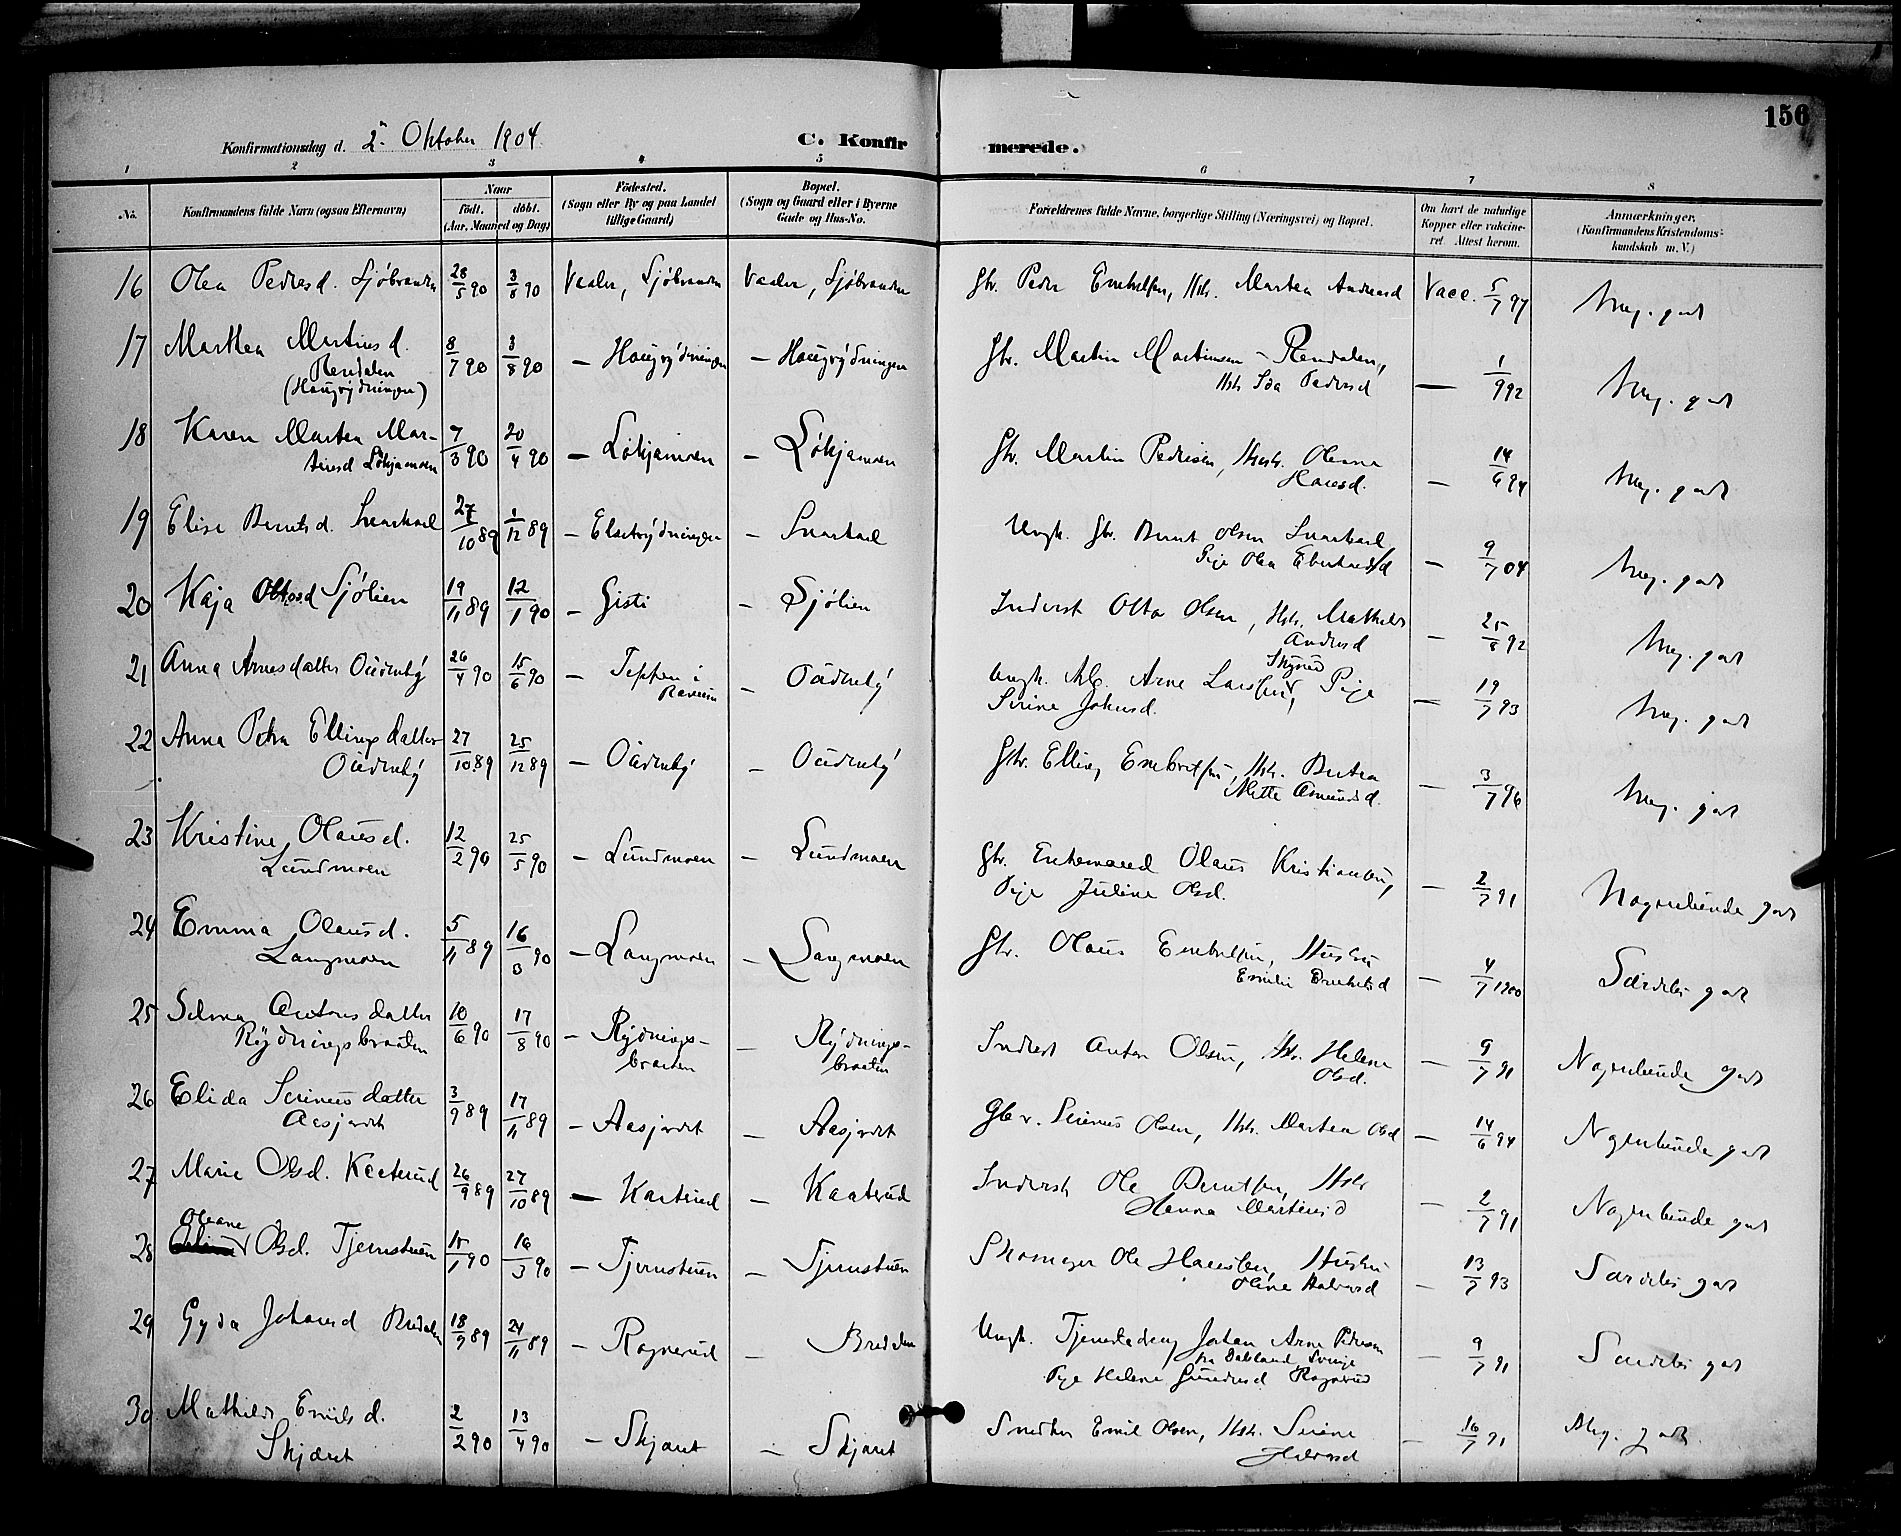 156
Konfirmationsdag d. 2. Oktober 1904.
C. Konfirmerede.
1 2 3 4 5 6 7 8
No. Konfirmandens fulde Navn (ogsaa Efternavn) Naar født. døbt. (Aar, Maaned og Dag) Fødested. (Sogn eller By og paa Landet tillige Gaard) Bopæl. (Sogn og Gaard eller i Byerne Gade og Hus-No. Forældrenes fulde Navne, borgerlige Stilling (Næringsvei) og Bopæl. Om havt de naturlige Kopper eller vaccineret Attest herom. Anmærkninger. (Konfirmandens Kristendomskundskab m. V.)
16 Olea Pedersd. Sjøbranden 28/5 90 3/8 90 Vaaler, Sjøbranden Vaaler, Sjøbranden Gbr. Peder Embretsen, Hstr. Martea Andersd Vacc. 5/7 97 Meg. godt
17 Marthea Martinsd. 8/7 90 3/8 90 – Haugrydningen – Haugrydningen Gbr. Martin Martinsen – Rendalen,
Rendalen Hstr Ida Pedersd – 1/9 92 Meg. godt
(Haugrydningen)
18 Karen Martea Mar- 7/3 90 20/4 90 – Løkjamoen – Løkjamoen Gbr. Martin Pedersen, Hustr. Oleana
tinsd Løkjamoen Hansd. – 14/6 94 Meg. godt
19 Elise Berntsd. Snarkael 27/10 89 1/12 89 – Elsetrydningen – Snarkael Ungk. Gbr. Bernt Olsen Snarkael
Pige Olea Eberhardsd – 9/7 04 Meg. godt
20 Kaja Ottosd Sjølien 19/11 89 12/1 90 – Gisti – Sjølien Inderst Otto Olsen, Hstr. Mathilde
Andersd – 25/8 92 Meg. godt
21 Anna Arnesdatter Oudenby 26/4 90 15/6 90 – Teppen i – Oudenby Ungk. Arb. Arne Larssen, Pige
Sirine Johnsd. – 19/7 93 Meg. godt
22 Anna Petra Ellingsdatter 27/10 89 25/12 89 – Oudenby – Oudenby Gbr. Elling Embretsen, Hstr. Bertea
Oudenby Mette Amundsd. – 3/7 96 Meg. godt
23 Kristine Olausd. 12/2 90 25/5 90 – Lundmoen – Lundmoen Gbr. Enkemand Olaus Kristiansen,
Lundmoen Pige Juline Olsd. – 2/7 91 Nogenlunde godt
24 Emma Olausd. 5/11 89 16/3 90 – Langmoen – Langmoen Gbr. Olaus Embretsen, Hustru
Langmoen Emilie Embretsd – 4/7 1900 Særdeles godt
25 Selma Antonsdatter 10/6 90 17/8 90 – Rydnings- – Rydnings- Inderst Anton Olsen, Hstr. Helene
Rydningsbraaten braaten braaten Olsd. – 9/7 91 Nogenlunde godt
26 Elida Serinusdatter 3/9 89 17/11 89 – Aasjordet – Aasjordet Gbr. Serinus Olsen, Hstr. Martea Olsd – 14/6 94 Nogenlunde godt
Aasjordet
27 Marie Olsd. Kaaterud 26/9 89 27/10 89 – Kaaterud – Kaaterud Inderst Ole Berntsen, Hstr
Hanna Martinsd – 2/7 91 Nogenlunde godt
Oleane
28 Olsd. Tjernstuen 15/1 90 16/3 90 – Tjernstuen – Tjernstuen Skomager Ole Hansen, Hustru
Oline Halvorsd – 13/7 93 Særdeles godt
29 Gyda Johansd Bredalen 18/9 89 24/11 89 – Rognerud – Bredalen Ungk. Tjenestedreng Johan Arne Pedersen
fra Dalsland, Sverige
Pige Helene Gundersd Rognerud – 9/7 91 Særdeles godt
30 Mathilde Emilsd. 2/2 90 13/4 90 – Skjæret – Skjæret Snedker Emil Olsen, Hstr. Serine
Skjæret Halvorsd – 16/7 91 Meg. godt